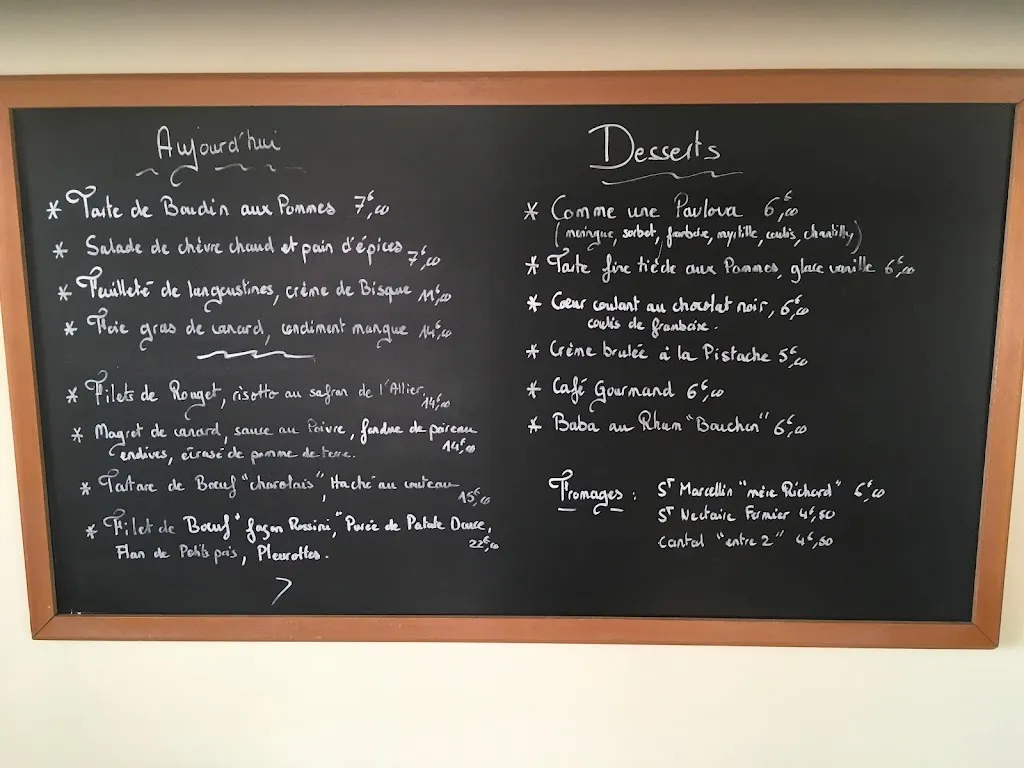 Aujourd'hui
* Tarte de Boudin aux Pommes 7€,00
* Salade de chèvre chaud et pain d'épices 7€,00
* Feuilleté de langoustines, crème de Bisque 11€,00
* Foie gras de canard, condiment mangue 14€,00
* Filets de Rouget, risotto au safran de l'Allier. 14€,00
* Magret de canard, sauce au Poivre, fondue de poireau 14€,00
endives, écrasé de pomme de terre.
* Tartare de Bœuf "charolais", Haché au couteau 15€,00
* Filet de Bœuf "façon Rossini", Purée de Patate Douce, 22€,00
Flan de Petits pois, Pleurottes.
Desserts
* Comme une Pavlova 6€,00
(meringue, sorbet, framboise, myrtille, coulis, chantilly)
* Tarte fine tiède aux Pommes, glace vanille 6€,00
* Cœur coulant au chocolat noir, 6€,00
coulis de framboise.
* Crème brulée à la Pistache 5€,00
* Café Gourmand 6€,00
* Baba au Rhum "Bouchon" 6€,00
Fromages : St Marcellin "mère Richard" 6€,00
St Nectaire Fermier 4€,50
Cantal "entre 2" 4€,50